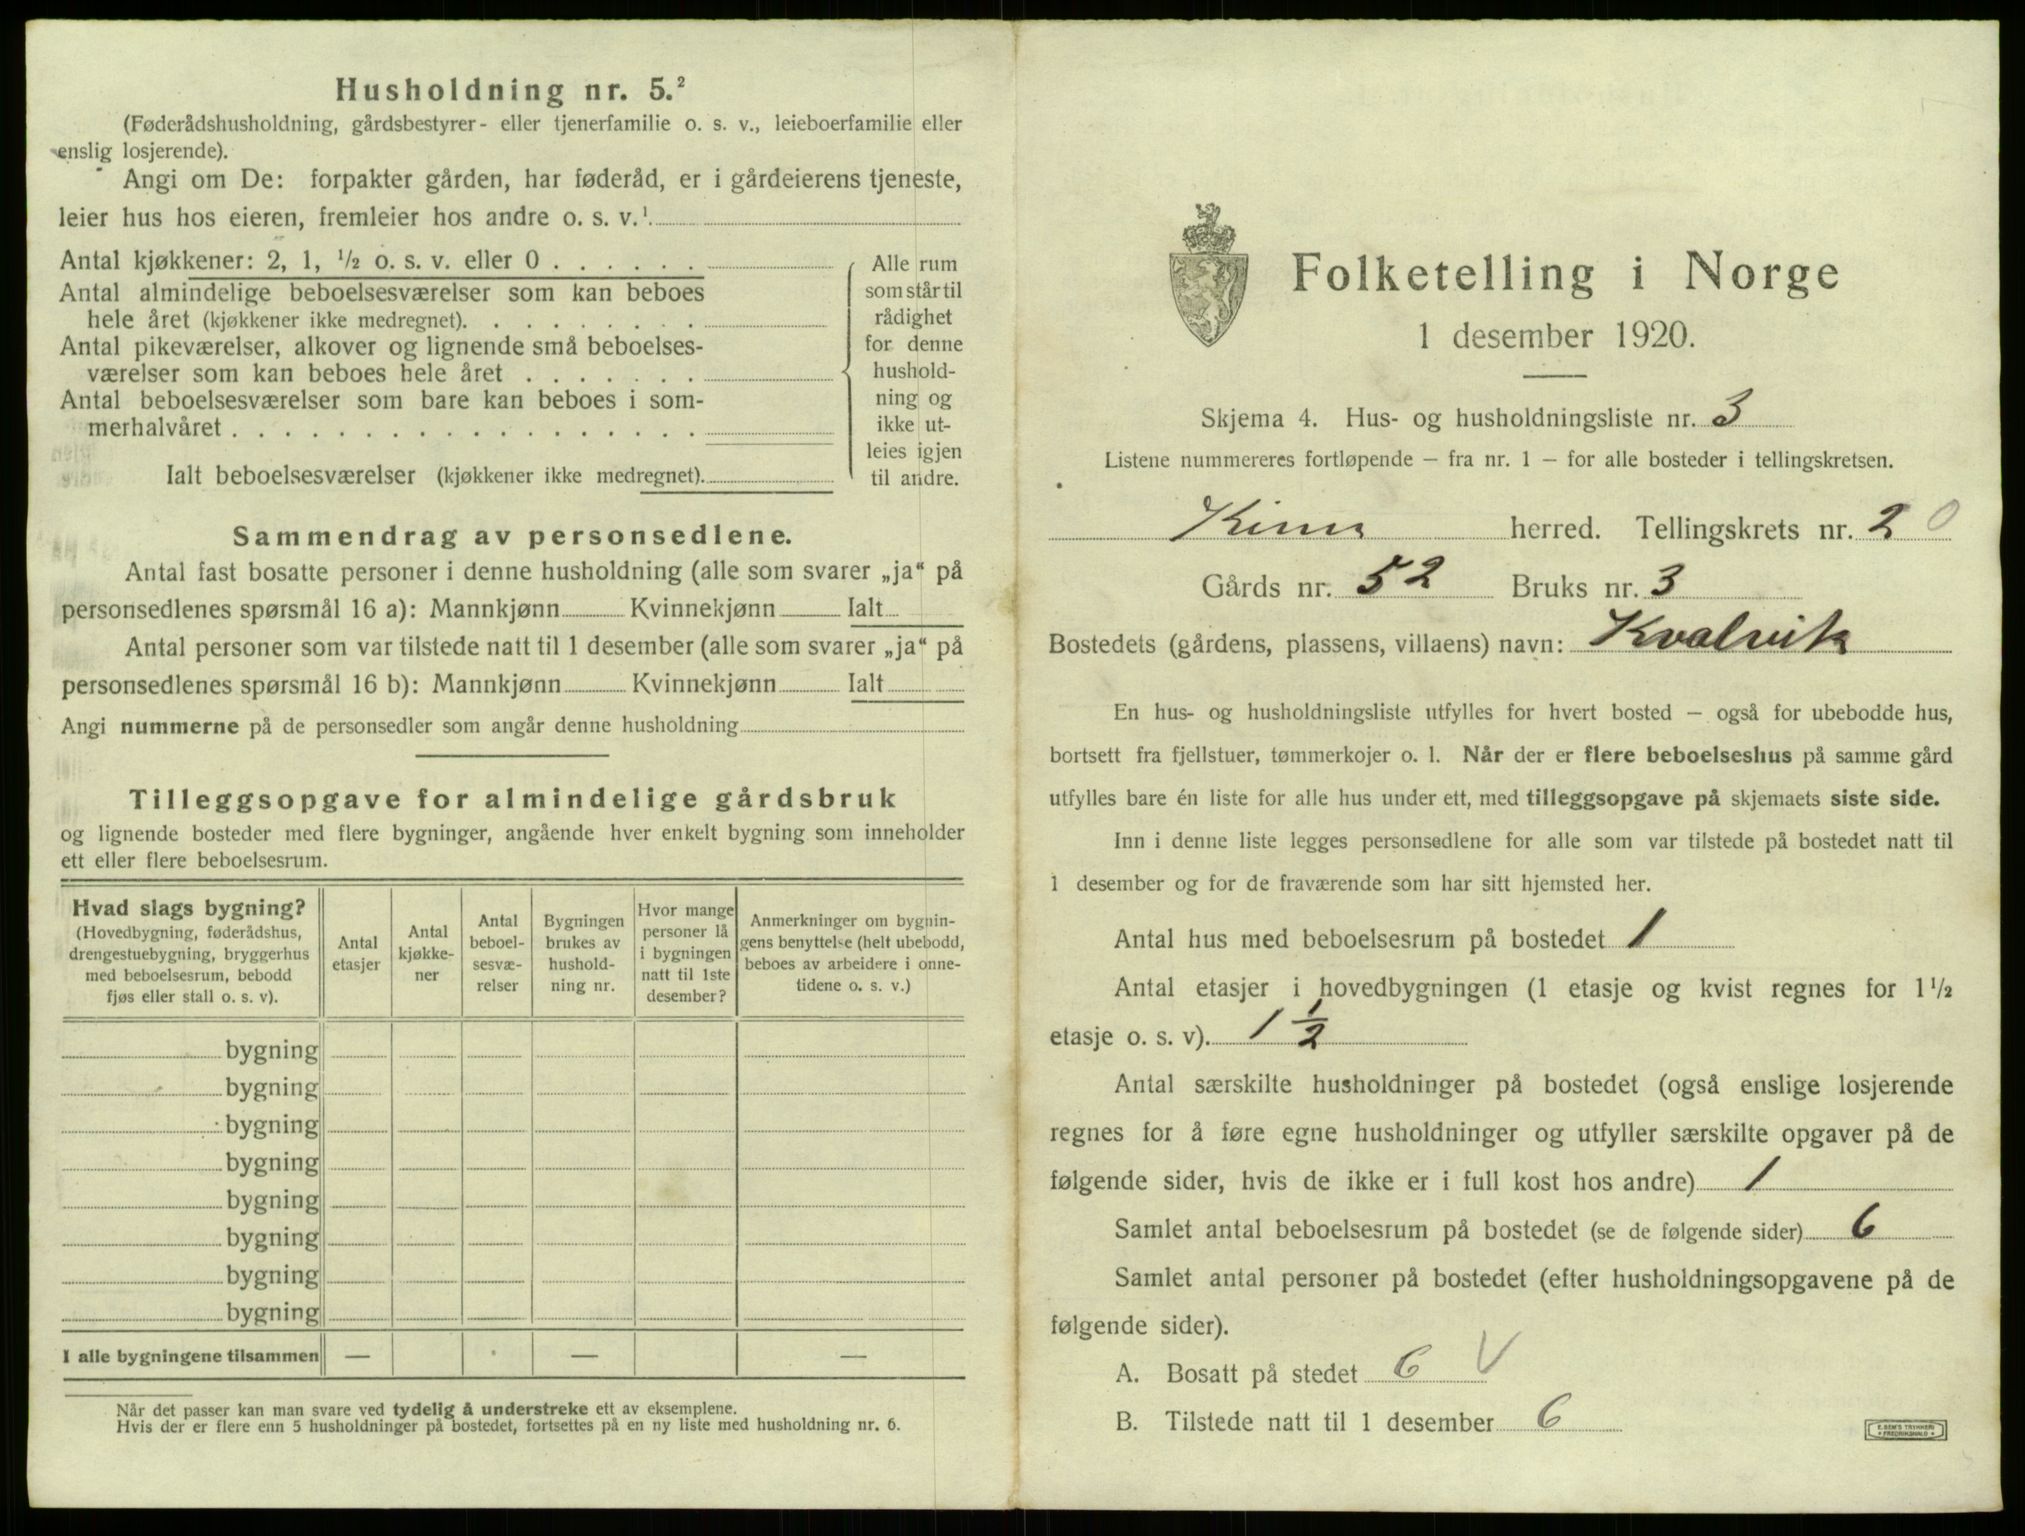 Husholdning nr. 5.²
(Føderådshusholdning, gårdsbestyrer- eller tjenerfamilie o. s. v., leieboerfamilie eller
enslig losjerende).
Angi om De: forpakter gården, har føderåd, er i gårdeierens tjeneste,
leier hus hos eieren, fremleier hos andre o. s. v.¹
Antal kjøkkener: 2, 1, ½ o. s. v. eller 0 . . . . . .
Antal almindelige beboelsesværelser som kan beboes
hele året (kjøkkener ikke medregnet). . . . . . . . .
Antal pikeværelser, alkover og lignende små beboelses-
værelser som kan beboes hele året . . . . . . .
Antal beboelsesværelser som bare kan beboes i som-
merhalvåret . . . . . . . . . . . . . . . . . .
Ialt beboelsesværelser (kjøkkener ikke medregnet).
Alle rum
som står til
rådighet
for denne
hushold-
ning og
ikke ut-
leies igjen
til andre.
Sammendrag av personsedlene.
Antal fast bosatte personer i denne husholdning (alle som svarer „ja“ på
personsedlenes spørsmål 16 a): Mannkjønn Kvinnekjønn Ialt
Antal personer som var tilstede natt til 1 desember (alle som svarer „ja“ på
personsedlenes spørsmål 16 b): Mannkjønn Kvinnekjønn Ialt
Angi nummerne på de personsedler som angår denne husholdning
Tilleggsopgave for almindelige gårdsbruk
og lignende bosteder med flere bygninger, angående hver enkelt bygning som inneholder
ett eller flere beboelsesrum.
Hvad slags bygning?
(Hovedbygning, føderådshus,
drengestuebygning, bryggerhus
med beboelsesrum, bebodd
fjøs eller stall o. s. v).
Antal
etasjer
Antal
kjøkke-
ner
Antal
beboel-
sesvæ-
relser
Bygningen
brukes av
hushold-
ning nr.
Hvor mange
personer lå
i bygningen
natt til 1ste
desember?
Anmerkninger om bygnin-
gens benyttelse (helt ubebodd,
beboes av arbeidere i onne-
tidene o. s. v.)
bygning
bygning
bygning
bygning
bygning
bygning
bygning
bygning
I alle bygningene tilsammen — — —
Når det passer kan man svare ved tydelig å understreke ett av eksemplene.
Hvis der er flere enn 5 husholdninger på bostedet, fortsettes på en ny liste med husholdning nr. 6.
Folketelling i Norge
1 desember 1920.
Skjema 4. Hus- og husholdningsliste nr. 3
Listene nummereres fortløpende – fra nr. 1 – for alle bosteder i tellingskretsen.
Kinn herred. Tellingskrets nr. 20
Gårds nr. 52 Bruks nr. 3
Bostedets (gårdens, plassens, villaens) navn: Kvalvik
En hus- og husholdningsliste utfylles for hvert bosted – også for ubebodde hus,
bortsett fra fjellstuer, tømmerkojer o. l. Når der er flere beboelseshus på samme gård
utfylles bare én liste for alle hus under ett, med tilleggsopgave på skjemaets siste side.
Inn i denne liste legges personsedlene for alle som var tilstede på bostedet natt til
1 desember og for de fraværende som har sitt hjemsted her.
Antal hus med beboelsesrum på bostedet 1
Antal etasjer i hovedbygningen (1 etasje og kvist regnes for 1½
etasje o. s. v). 1 ½
Antal særskilte husholdninger på bostedet (også enslige losjerende
regnes for å føre egne husholdninger og utfyller særskilte opgaver på de
følgende sider, hvis de ikke er i full kost hos andre) 1
Samlet antal beboelsesrum på bostedet (se de følgende sider) 6
Samlet antal personer på bostedet (efter husholdningsopgavene på de
følgende sider).
A. Bosatt på stedet 6 V
B. Tilstede natt til 1 desember 6
E. SEM'S TRYKKERI
FREDRIKSHALD